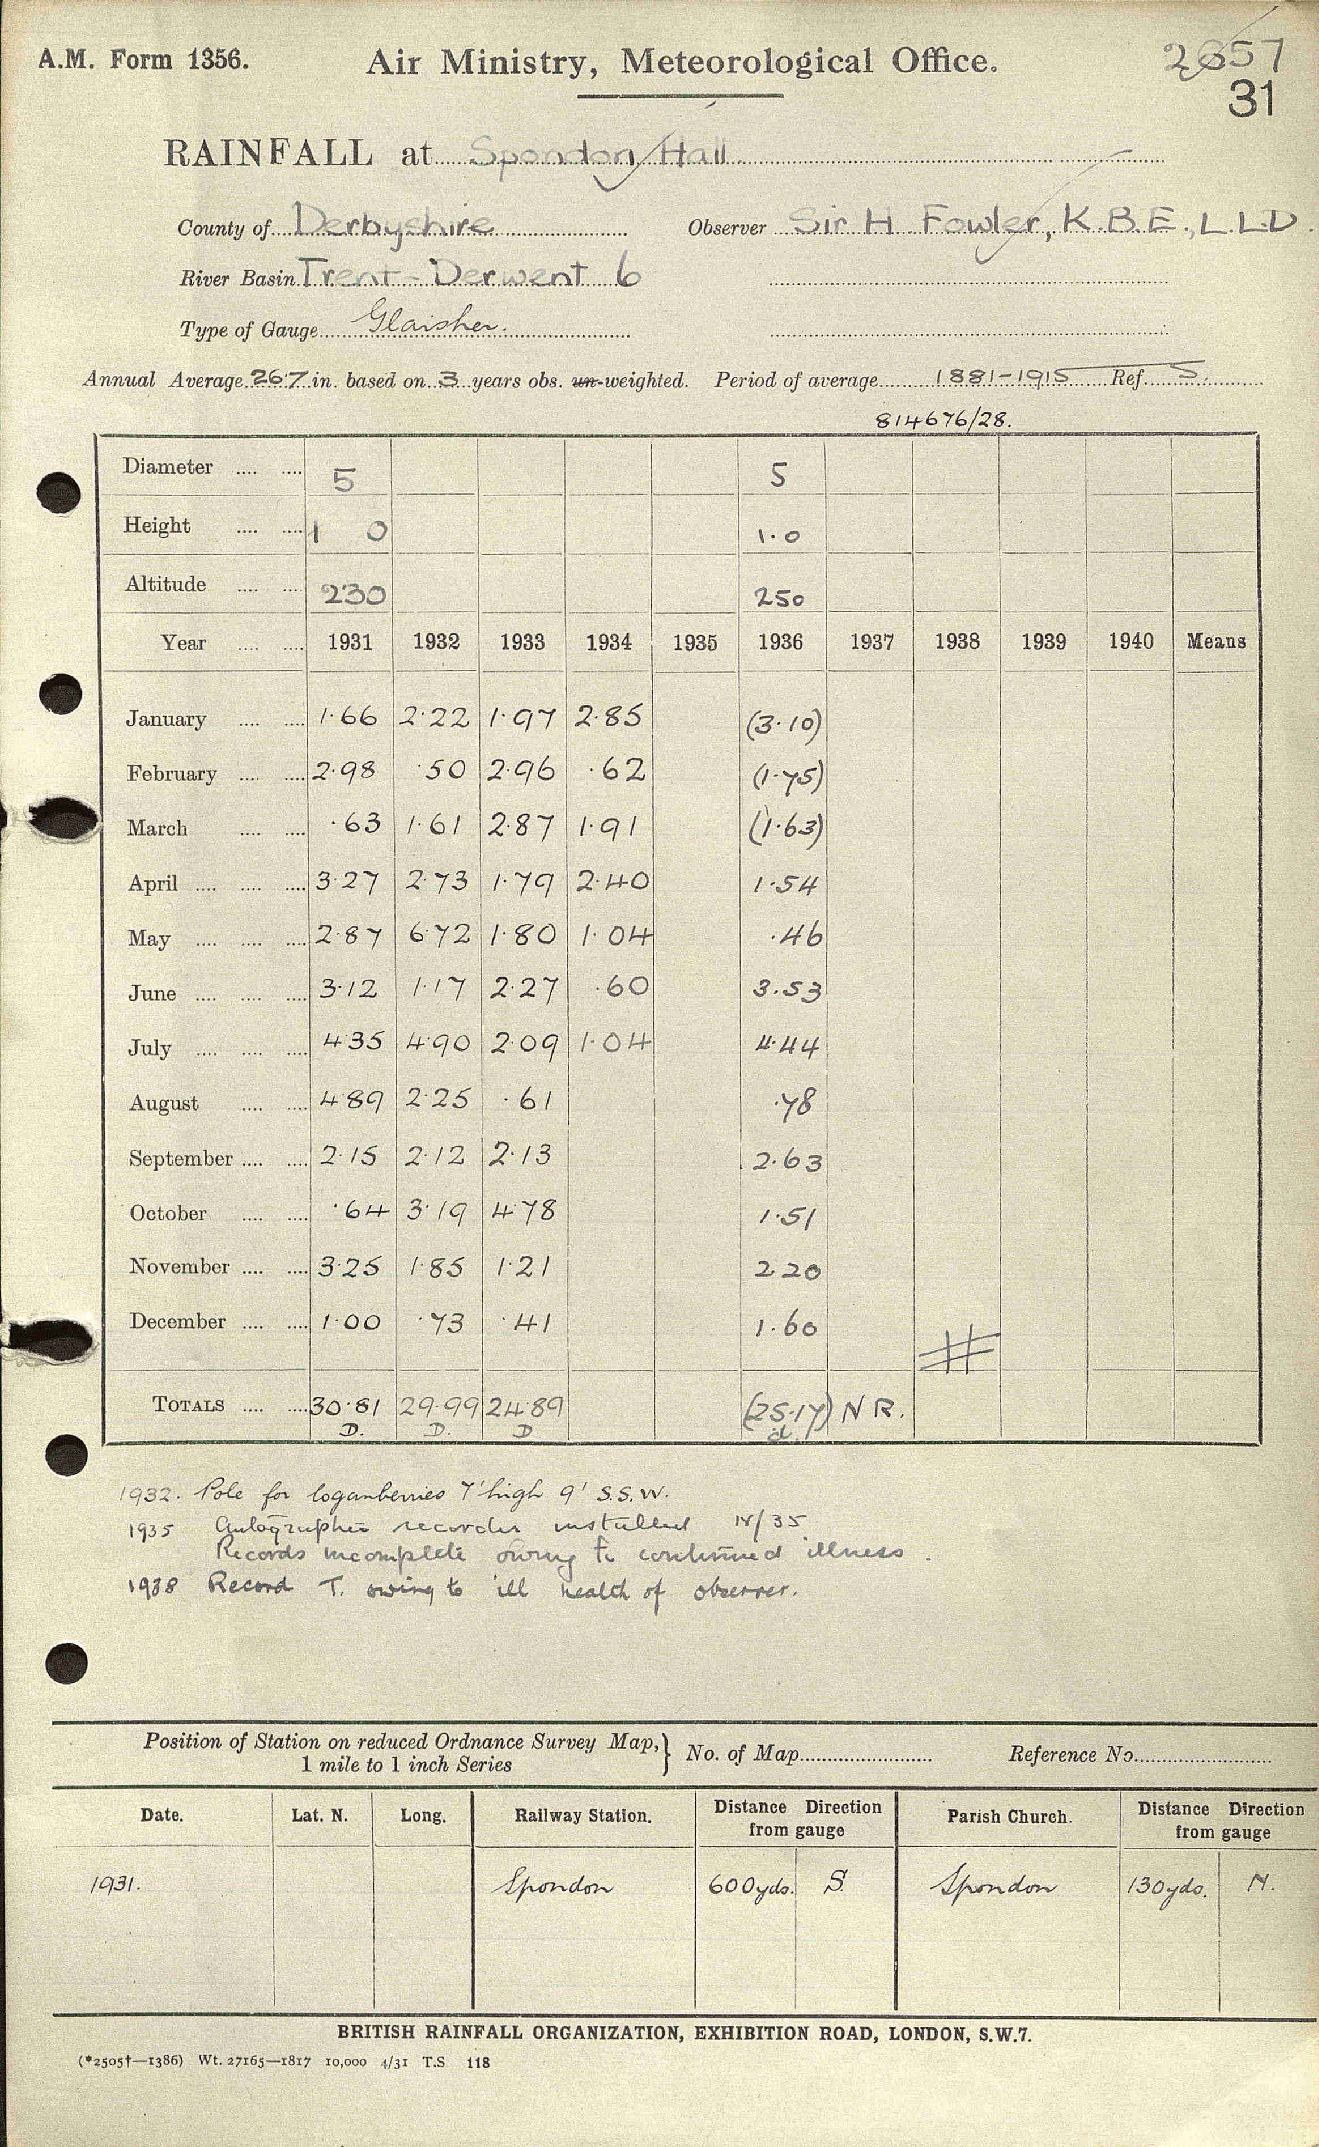 A.M. Form 1356.
Air Ministry, Meteorological Office.
2657
31
RAINFALL at Spondon Hall
County of Derbyshire Observer Sir H Fowler, K.B.E., L.L.D.
River Basin Trent-Derwent 6
Type of Gauge Glaisher.
Annual Average 26.7 in. based on 3 years obs. un-weighted. Period of average 1881-1915 Ref. S.
814676/28.
Diameter .... .... 5 5
Height .... .... 1 0 1.0
Altitude .... .... 230 250
Year .... .... 1931 1932 1933 1934 1935 1936 1937 1938 1939 1940 Means
January .... .... 1.66 2.22 1.97 2.85 (3.10)
February .... .... 2.98 .50 2.96 .62 (1.75)
March .... .... .63 1.61 2.87 1.91 (1.63)
April .... .... .... 3.27 2.73 1.79 2.40 1.54
May .... .... .... 2.87 6.72 1.80 1.04 .46
June .... .... .... 3.12 1.17 2.27 .60 3.53
July .... .... .... 4.35 4.90 2.09 1.04 4.44
August .... .... 4.89 2.25 .61 .78
September .... .... 2.15 2.12 2.13 2.63
October .... .... .64 3.19 4.78 1.51
November .... .... 3.25 1.85 1.21 2.20
December .... .... 1.00 .73 .41 1.60
TOTALS .... .... 30.81 29.99 24.89 (25.17) N R.
D. D. D d.
1932. Pole for loganberries 7' high 9' S.S.W.
1935 Autographic recorder installed /35
Records incomplete owing to continued illness.
1938 Record T. owing to ill health of observer.
Position of Station on reduced Ordnance Survey Map,
1 mile to 1 inch Series
No. of Map Reference No.
Date. Lat. N. Long. Railway Station. Distance Direction from gauge Parish Church. Distance Direction from gauge
1931. Spondon 600yds. S. Spondon 130yds. N.
BRITISH RAINFALL ORGANIZATION, EXHIBITION ROAD, LONDON, S.W.7.
(*2505†—1386) Wt. 27165—1817 10,000 4/31 T.S 118